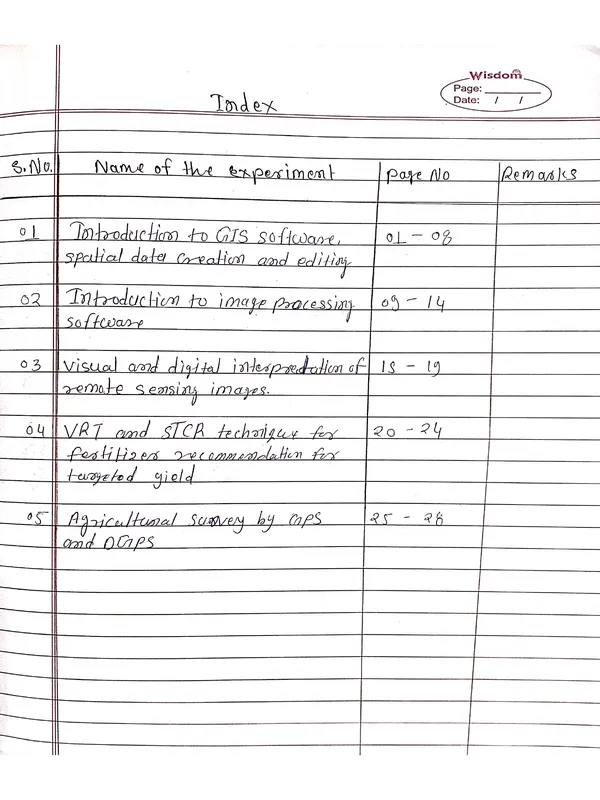 Wisdom
Page:
Date: / /
Index
S.No. Name of the experiment Page No Remarks
01 Introduction to GIS software, 01 - 08
spatial data creation and editing
02 Introduction to image processing 09 - 14
software
03 Visual and digital interpretation of 15 - 19
remote sensing images.
04 VRT and STCR technique for 20 - 24
fertilizer recommendation for
targeted yield
05 Agricultural survey by GPS 25 - 28
and DGPS